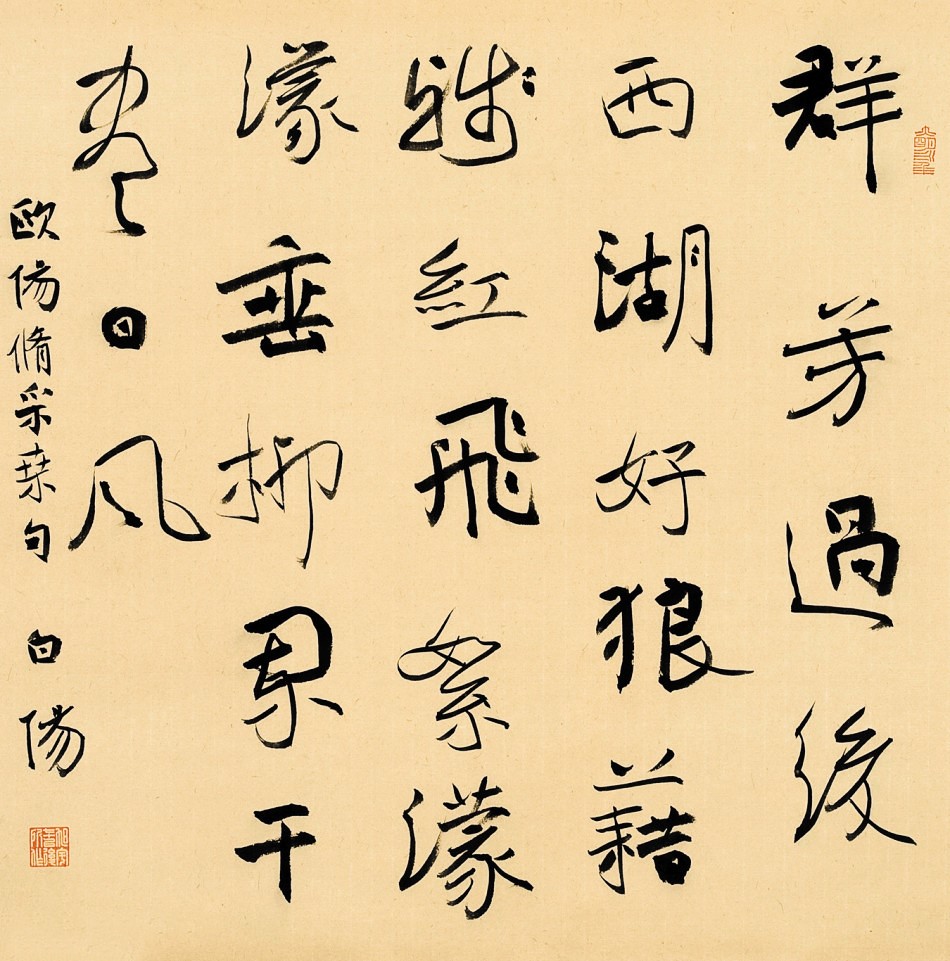 群芳過後
西湖好狼藉
殘紅飛絮濛
濛垂柳闌干
盡日風
欧陽脩采桑句 白陽